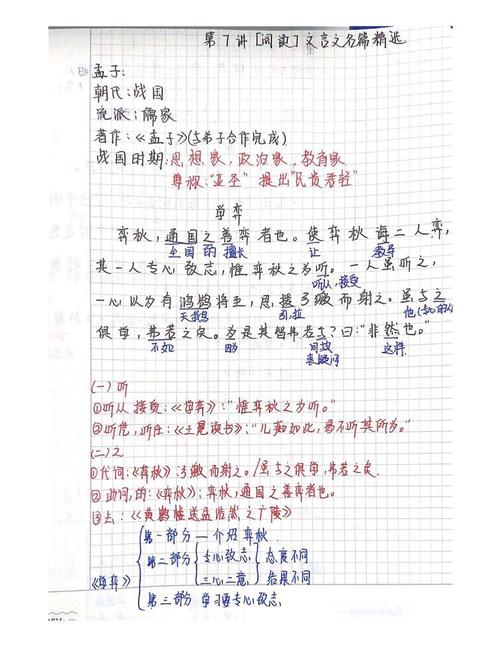 第7讲[阅读]文言文名篇精选
孟子:
朝代:战国
流派:儒家
著作:《孟子》(与弟子合作完成)
战国时期:思想家,政治家,教育家
尊称:"亚圣" 提出"民贵君轻"
学弈
弈秋,通国之善弈者也。使弈秋诲二人弈,
全国的 擅长 让 教导
其一人专心致志,惟弈秋之为听。一人虽听之,
听从,接受
一心以为有鸿鹄将至,思援弓缴而射之。虽与之
天鹅 引,拉 他(专心的人)
俱学,弗若之矣。为是其智弗若与?曰:"非然也。"
不如 因为 同欤 这样
表疑问
(一)听
①听从 接受:《学弈》:"惟弈秋之为听。"
②听凭,听任:《王冕读书》:"儿痴如此,曷不听其所为。"
(二)之
①代词:《弈秋》:弓缴而射之。/虽与之俱学,弗若之矣.
②助词,的:《弈秋》:弈秋,通国之善弈者也.
③去:《黄鹤楼送孟浩然之广陵》
第一部分—介绍弈秋.
第二部分 专心致志 态度不同
《学弈》 三心二意 结果不同
第三部分 学习要专心致志